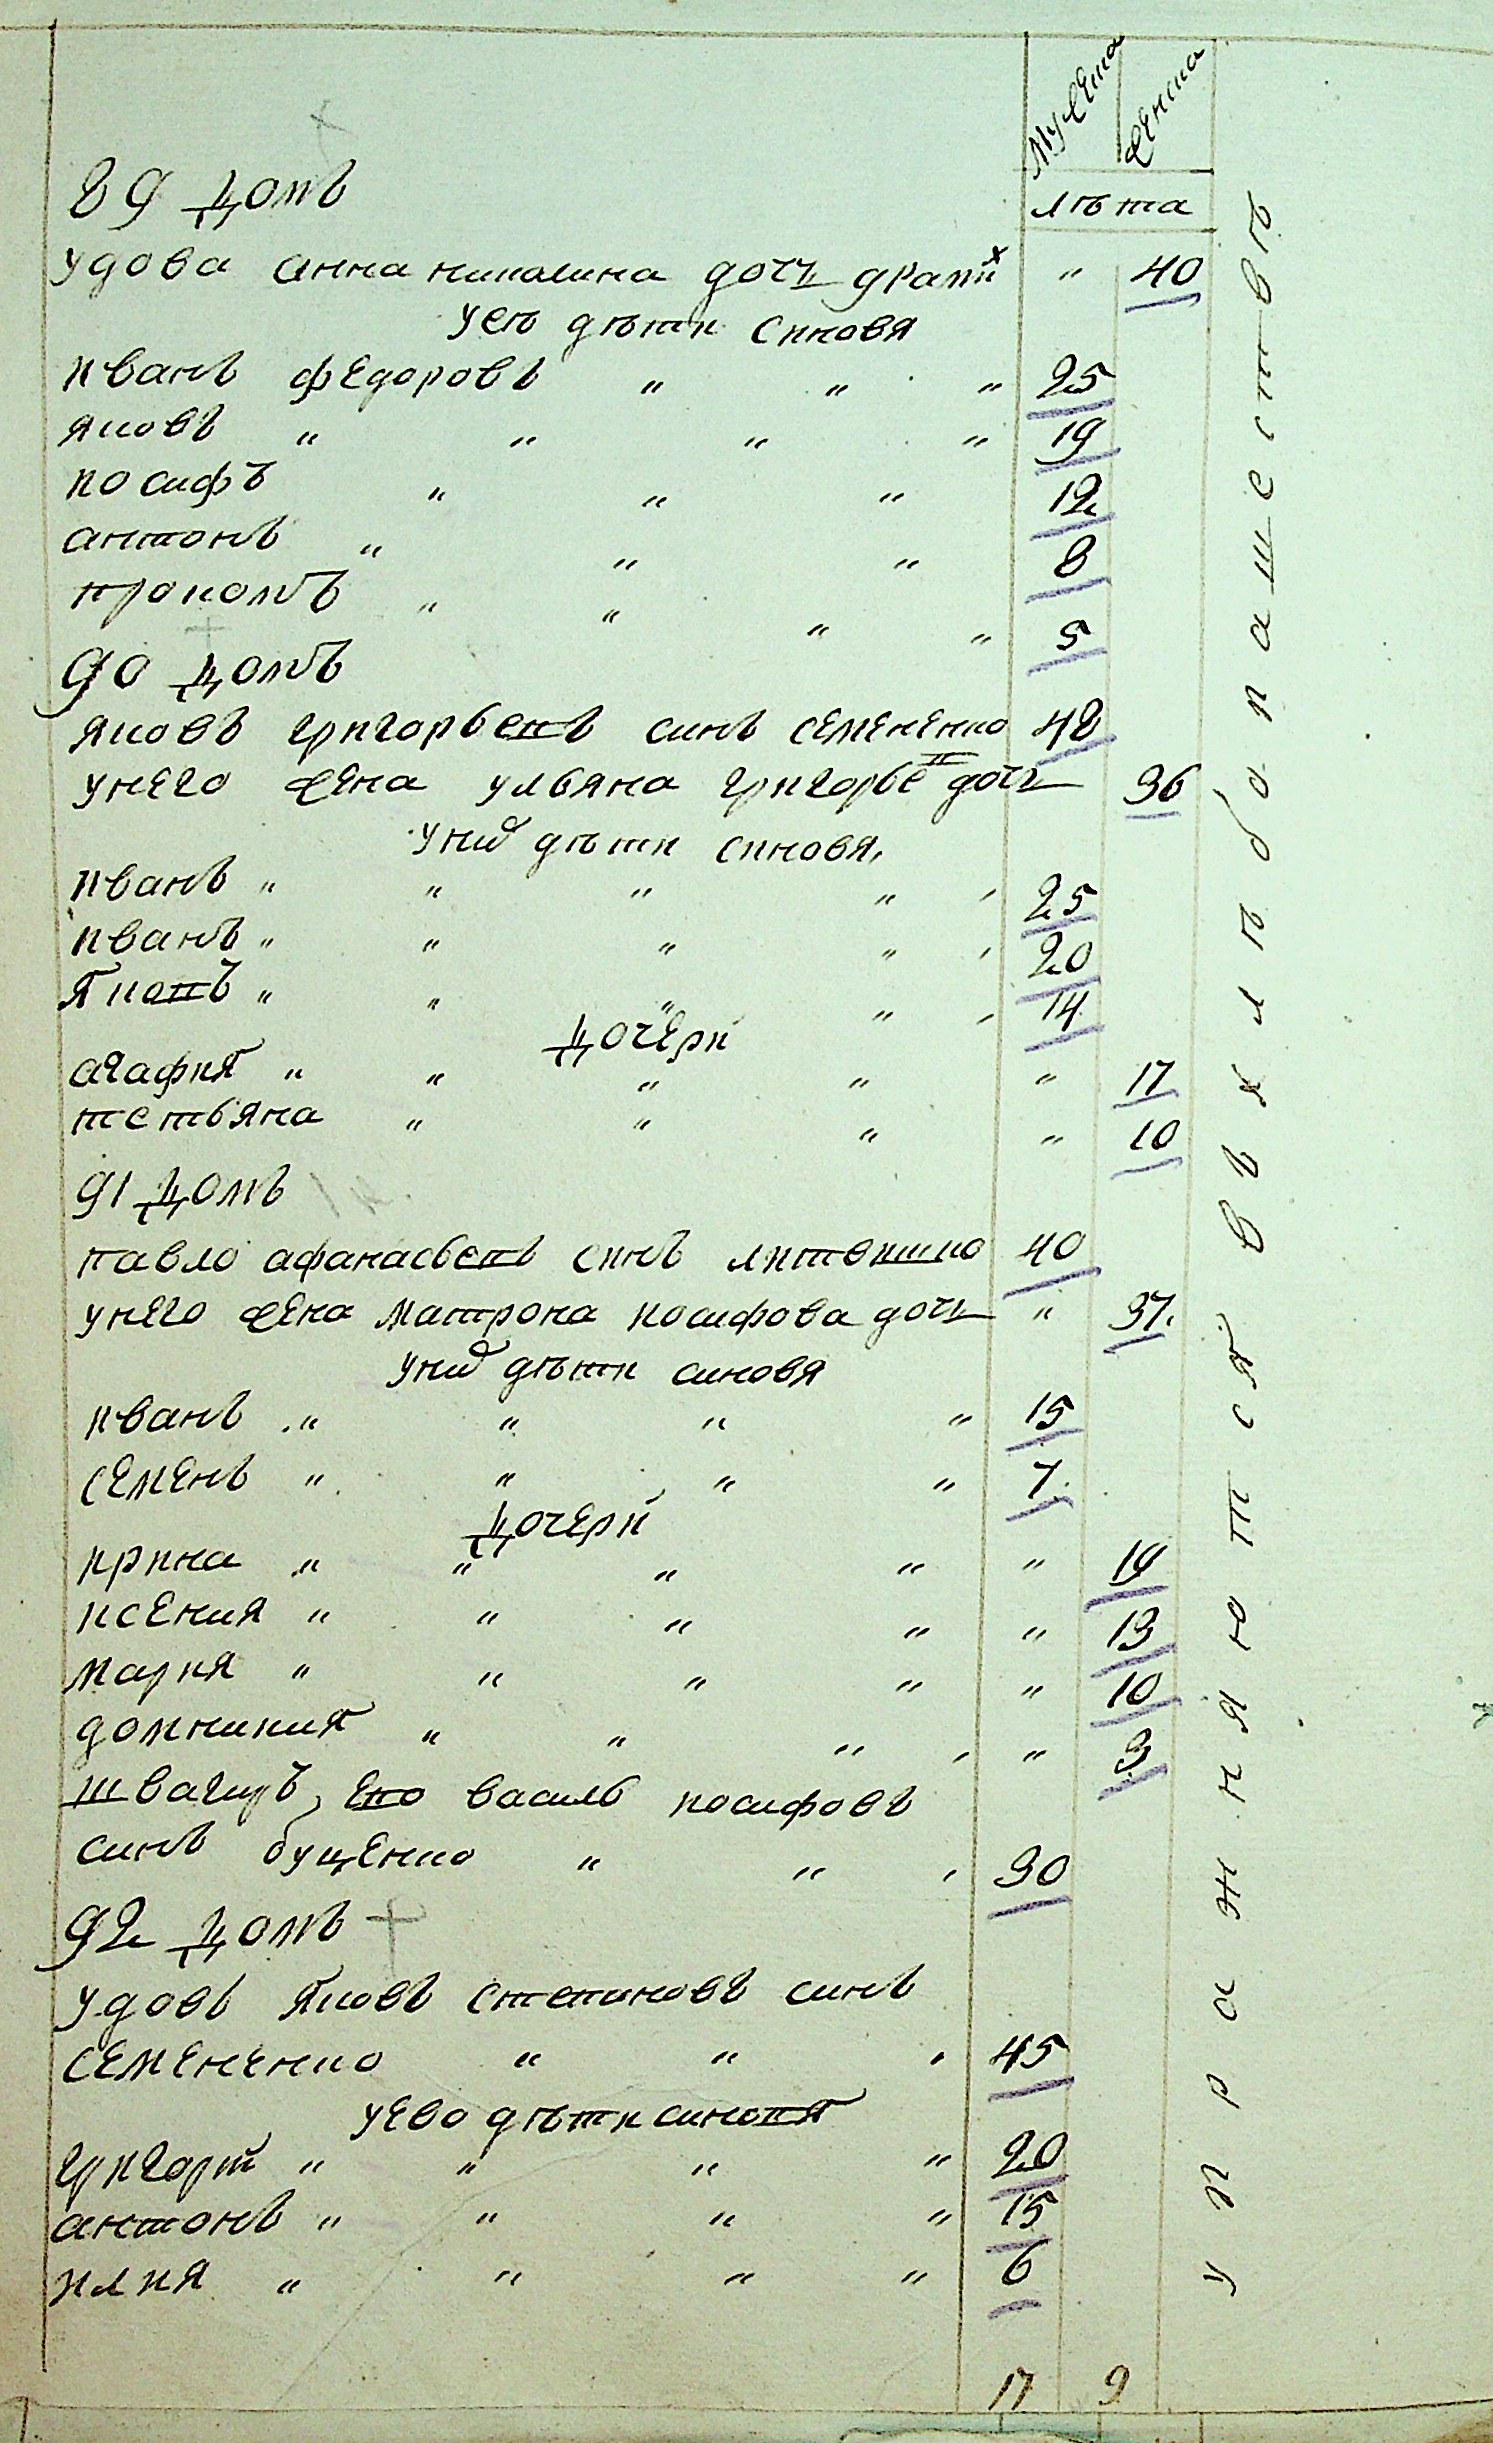 Мужеска
женска
лѣта
89 Домъ
удова анна николина дочъ драги " 40
уеѣ дѣти синовя
иванъ федоровъ " " " 25
яковъ " " " " 19
иосифъ " " " 12
антонъ " " " 8
прокопъ " " " " 5
90 Домъ
яковъ григорьевъ синъ семененко 48
унего жена ульяна григорье дочъ 36
уних дѣти синовя
иванъ " " " " 25
иванъ " " " " 20
яковъ " " " " 14
Дочери
агафия " " " " " 17
тетьяна " " " " 10
91 Домъ
павло афанасьевъ синъ литвишко 40
унего жена матрона иосифова дочъ " 37.
уних дѣти синовя
иванъ " " " " 15
семенъ " " " " 7.
Дочери
ирина " " " " " 19
ксения " " " " " 13
мария " " " " " 10
домникия " " " " 3
швагиръ его василь иосифовъ
синъ буценко " " 30
92 Домъ
удовъ яковъ степановъ синъ
семененко " " 45
уево дѣти синовя
григорій " " " " 20
антонъ " " " " 15
илия " " " " 6
17 9
упражняются въ хлѣбопашествѣ